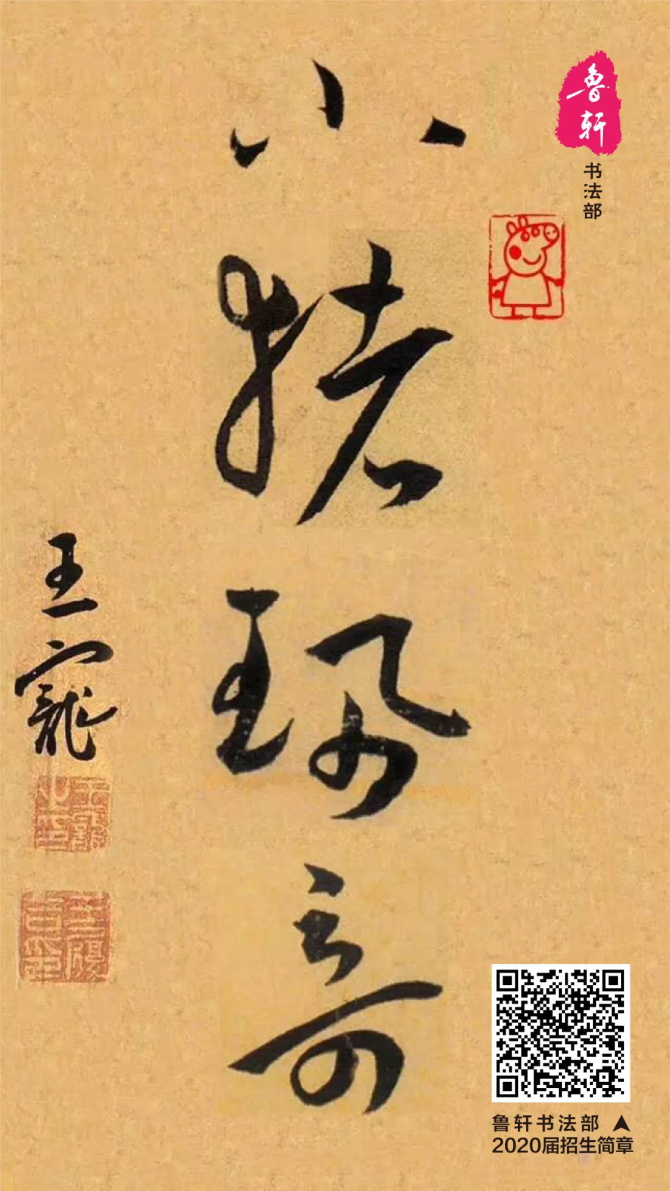 小猪珮奇
王宠
鲁轩
书法部
鲁轩书法部
2020届招生简章